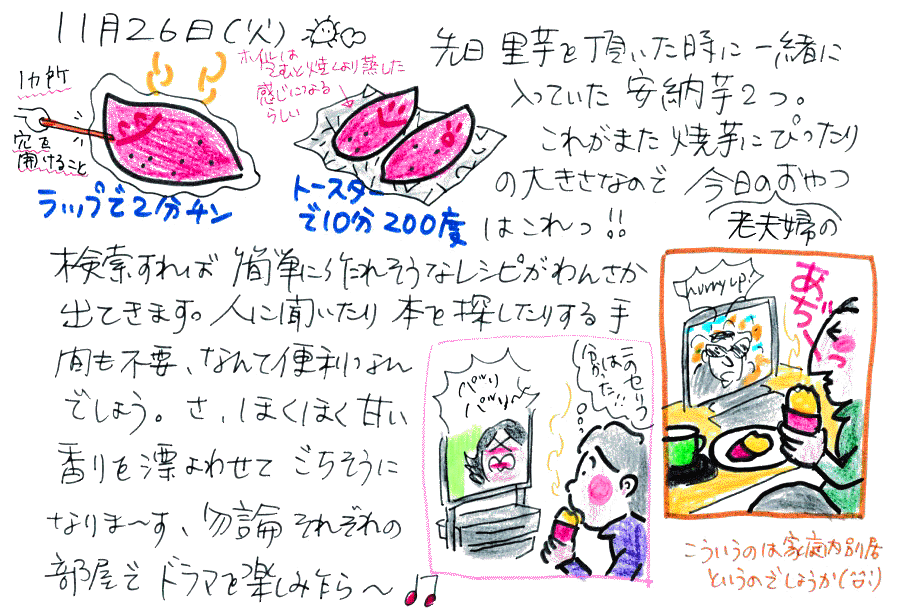 11月26日(火)
先日 里芋を頂いた時に一緒に
入っていた 安納芋2つ。
これがまた 焼芋にぴったり
の大きさなので 今日のおやつ
はこれっ!!
1カ所
穴を
開けること
ラップで2分チン
ホイルは
包むと焼くより蒸した
感じになる
らしい
トースター
で10分 200度
検索すれば 簡単に作れそうなレシピがわんさか
出てきます。人に聞いたり 本を探したりする手
間も不要、なんて便利なん
でしょう。さ、ほくほく甘い
香りを漂よわせて ごちそうに
なりま〜す、勿論 それぞれの
部屋で ドラマを楽しみ乍ら〜♪
老夫婦の
hurry up!
あぢーっ
パリパリ〜
こういうのは家庭内別居
というのでしょうか